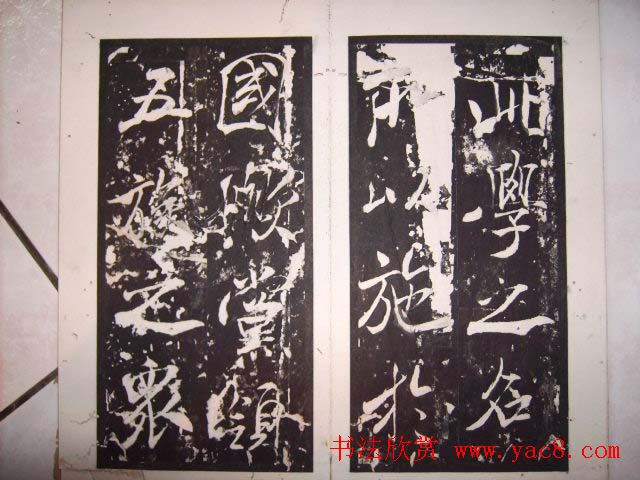 此學之名
所以施於
國 黨領
五族之衆
书法欣赏 www.yac8.com